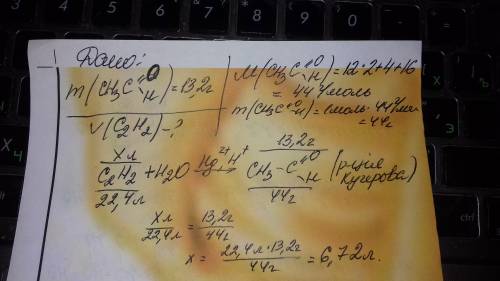 Дано:
m(CH3C=O H)=13,2г
V(C2H2)-?
M(CH3C=O H)=12·2+4+16
= 44 г/моль
m(CH3C=O H)=1моль·44г/моль
=44г
xл 13,2г
C2H2 + H2O Hg2+, H+ → CH3-C=O H (р-ція
22,4л 44г Кучерова)
xл/22,4л = 13,2г/44г
x = 22,4л·13,2г/44г = 6,72л.